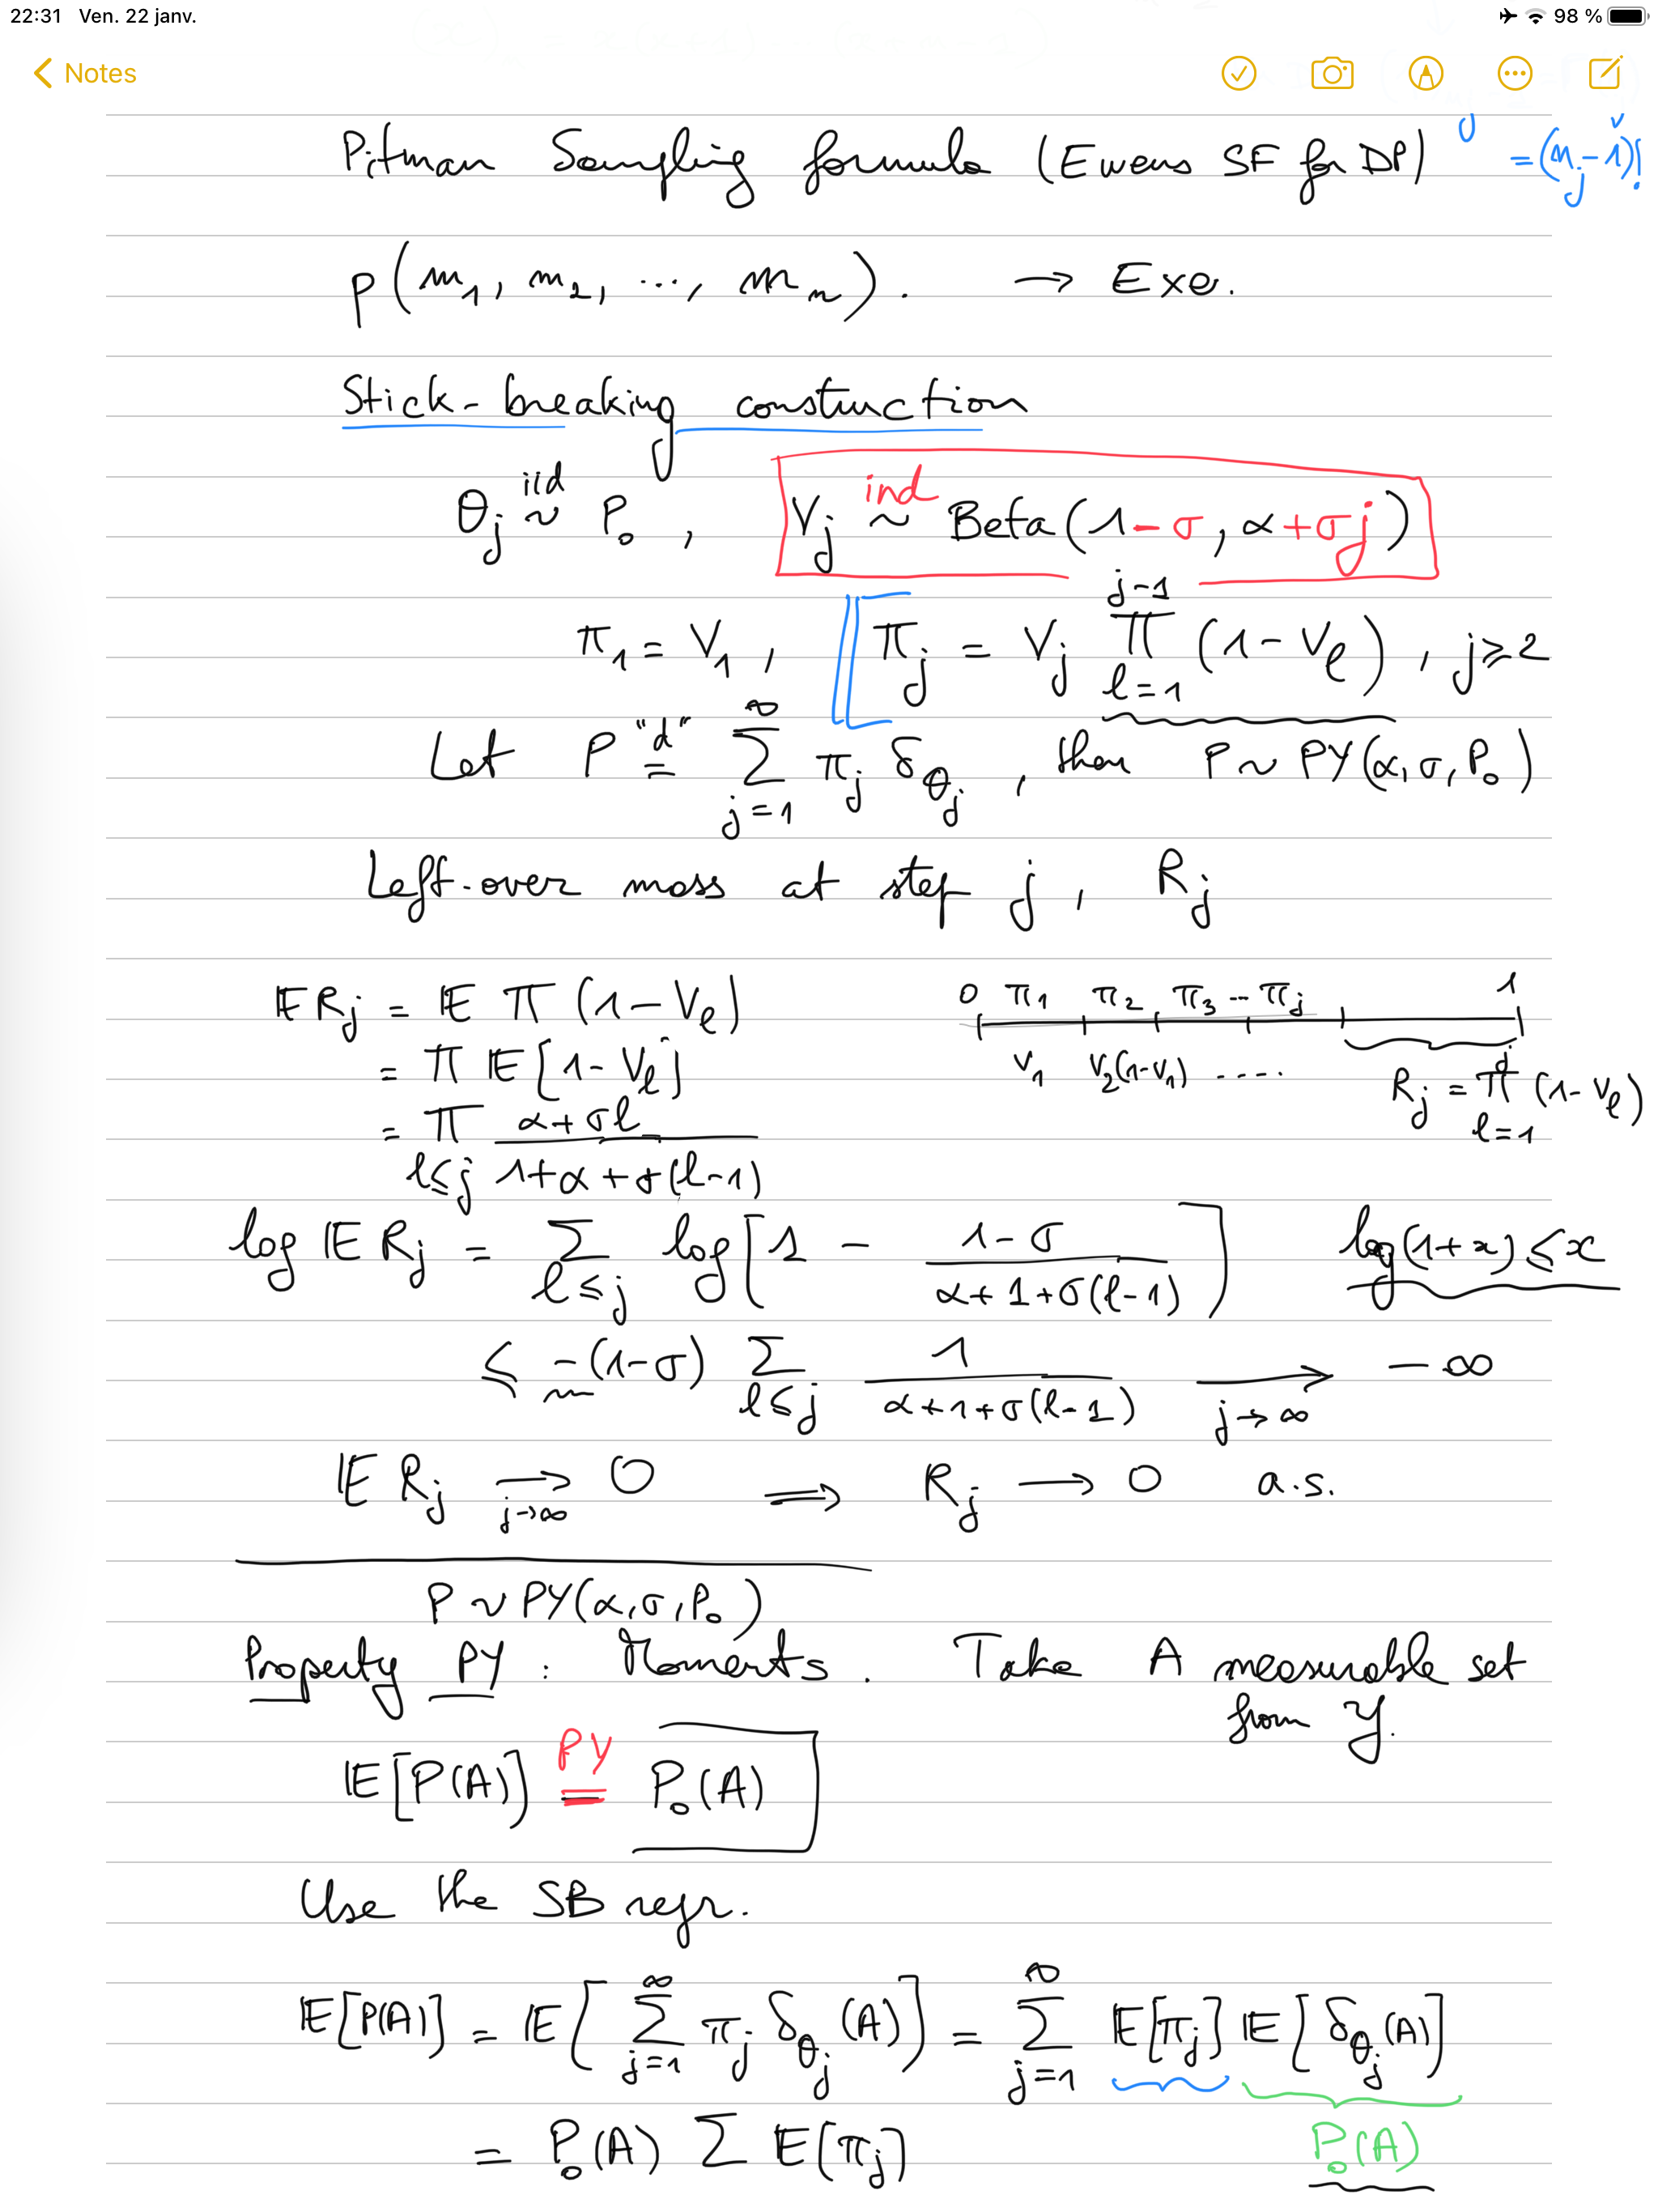 22:31 Ven. 22 janv. 98 %
Notes
Pitman Sampling formula (Ewens SF for DP) = (n_j - 1)!
p(m_1, m_2, ..., m_n). → Exe.
Stick-breaking construction
θ_j iid ~ P_0, V_j ind ~ Beta(1-σ, α+σj)
π_1 = V_1, π_j = V_j ∏_{l=1}^{j-1} (1-V_l), j≥2
Let P "d" = ∑_{j=1}^∞ π_j δ_{θ_j}, then P ~ PY(α, σ, P_0)
Left-over mass at step j, R_j
𝔼R_j = 𝔼 ∏ (1-V_l) 0 π_1 π_2 π_3 -- π_j 1
= ∏ 𝔼[1-V_l] V_1 V_2(1-V_1) .... R_j = ∏_{l=1}^{j} (1-V_l)
= ∏_{l≤j} (α+σl)/(1+α+σ(l-1))
log 𝔼R_j = ∑_{l≤j} log[1 - (1-σ)/(α+1+σ(l-1))] log(1+x) ≤ x
≤ -(1-σ) ∑_{l≤j} 1/(α+1+σ(l-1)) →_{j→∞} -∞
𝔼R_j →_{j→∞} 0 ⟹ R_j → 0 a.s.
P ~ PY(α, σ, P_0)
Property PY : Moments. Take A measurable set
from Y.
𝔼[P(A)] PY = P_0(A)
Use the SB repr.
𝔼[P(A)] = 𝔼[∑_{j=1}^∞ π_j δ_{θ_j}(A)] = ∑_{j=1}^∞ 𝔼[π_j] 𝔼[δ_{θ_j}(A)]
= P_0(A) ∑ 𝔼[π_j] P_0(A)